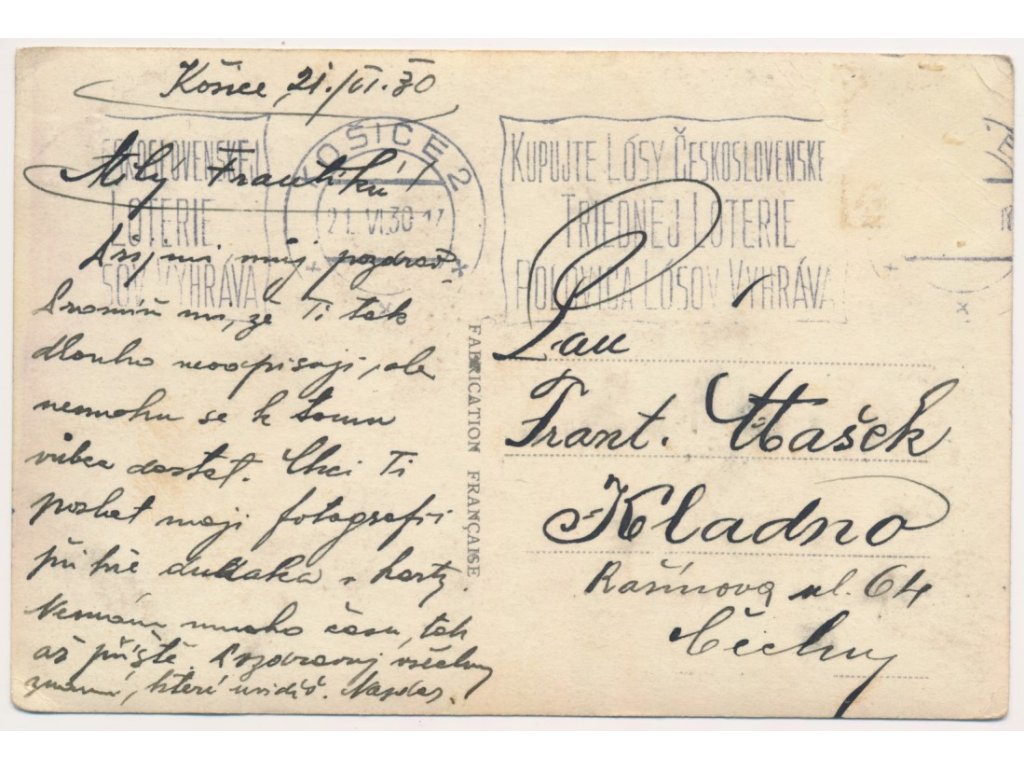 Košice 21./VI.30
Milý Frantíku!
Přijmi můj pozdrav.
Promiň mi, že Ti tak
dlouho neodpisuji, ale
nemohu se k tomu
vůbec dostat. Chci Ti
poslat moji fotografii
při hře
Nemám mnoho času, tak
až příště. Pozdravuj všechny
známé, které uvidíš. Nazdar.
ČESKOSLOVENSKEJ
LOTERIE
SOV VYHRÁVA
KOŠICE 2
21. VI. 30 - 17
KUPUJTE LÓSY ČESKOSLOVENSKE
TRIEDNEJ LOTERIE
POLOVICA LÓSOV VYHRÁVA!
FABRICATION FRANÇAISE
Pan
Frant. Hašek
Kladno
Rašínova ul. 64
Čechy